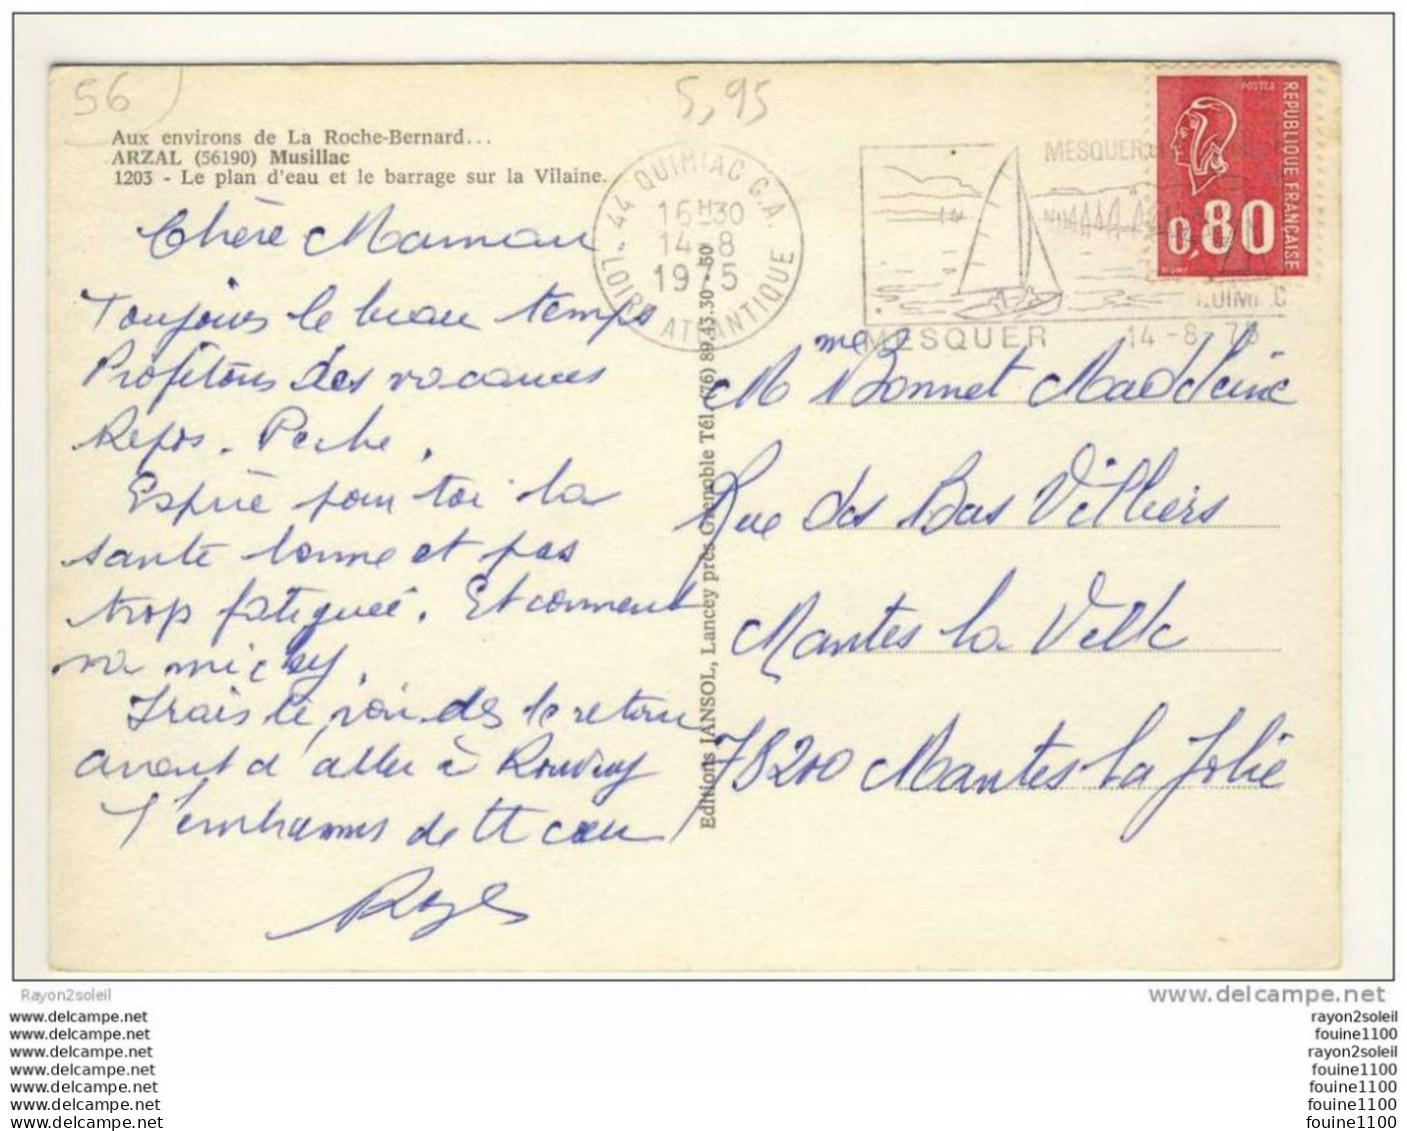 56
5,95
Aux environs de La Roche-Bernard...
ARZAL (56190) Musillac
1203 - Le plan d'eau et le barrage sur la Vilaine.
Chère Maman
Toujours le beau temps
Profitons des vacances
Repos. Peche.
Espère pour toi la
sante bonne et pas
trop fatiguée. Et comment
va mickey.
Irais te voir des le retour
avant d'aller à Rouvray
T'embrasses de tt coeur
Roger
44 QUIMIAC G.A.
16H30
14-8
1975
LOIRE ATLANTIQUE
MESQUER
MESQUER
QUIMIAC
14-8-75
POSTES
REPUBLIQUE FRANÇAISE
0,80
Editions JANSOL, Lancey près Grenoble Tél. (76) 89.43.30 - 50
Mme Bonnet Madeleine
Rue des Bas Villiers
Mantes la Ville
78200 Mantes la Jolie
Rayon2soleil
www.delcampe.net
www.delcampe.net
www.delcampe.net
www.delcampe.net
www.delcampe.net
www.delcampe.net
www.delcampe.net
www.delcampe.net
rayon2soleil
fouine1100
rayon2soleil
fouine1100
fouine1100
fouine1100
fouine1100